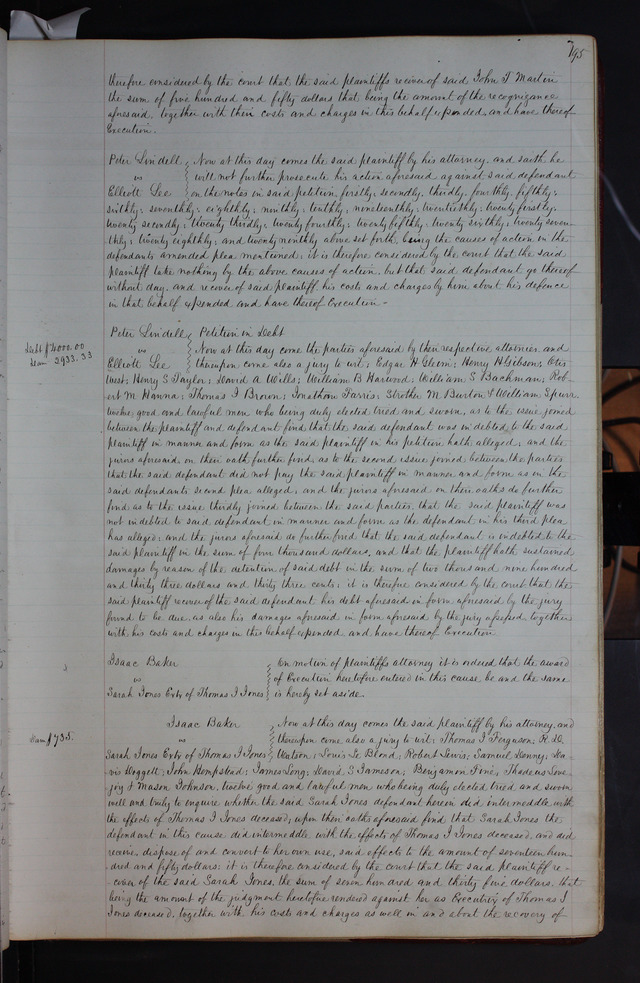 795
therefore considered by the court that the said plaintiffs recover of said John T Martin
the sum of five hundred and fifty dollars that being the amount of the recognizance
aforesaid, together with their costs and charges in this behalf expended, and have thereof
Execution.
Peter Lindell Now at this day comes the said plaintiff by his attorney, and saith he
vs will not further prosecute his action aforesaid against said defendant
Elliott Lee on the notes in said petition firstly, secondly, thirdly, fourthly, fifthly;
sixthly; seventhly; eighthly; ninthly; tenthly, nineteenthly; twentiethly; twenty firstly;
twenty secondly; twenty thirdly; twenty fourthly; twenty fifthly; twenty sixthly; twenty seven
thly; twenty eighthly; and twenty ninthly above set forth, being the causes of action in the
defendants amended plea mentioned; it is therefore considered by the court that the said
plaintiff take nothing by the above causes of action, but that said defendant go thereof
without day, and recover of said plaintiff his costs and charges by him about his defence
in that behalf expended and have thereof Execution.
Peter Lindell Petition in Debt
Debt $4000.00
Dam 2933.33
vs Now at this day come the parties aforesaid by their respective attornies, and
Elliott Lee thereupon come also a jury to wit; Edgar H Glenn; Henry H Gibson; Otis
West; Henry S Taylor; David A Wills; William B Harwood; William S Bachman; Rob-
ert M Hanna; Thomas I Brown; Jonathan Farris; Strother M Burton & William Spurr
twelve good and lawful men who being duly elected tried and sworn, as to the issue joined
between the plaintiff and defendant find that the said defendant was indebted to the said
plaintiff in manner and form as the said plaintiff in his petition hath alleged, and the
jurors aforesaid on their oath further find, as to the second issue joined between the parties
that the said defendant did not pay the said plaintiff in manner and form as in the
said defendants second plea alleged, and the jurors aforesaid on their oaths do further
find as to the issue thirdly joined between the said parties, that the said plaintiff was
not indebted to said defendant in manner and form as the defendant in his third plea
has alleged; and the jurors aforesaid do further find that the said defendant is indebted to the
said plaintiff in the sum of four thousand dollars, and that the plaintiff hath sustained
damages by reason of the detention of said debt in the sum of two thousand nine hundred
and thirty three dollars and thirty three cents; it is therefore considered by the court that the
said plaintiff recover of the said defendant his debt aforesaid in form aforesaid by the jury
found to be due, as also his damages aforesaid in form aforesaid by the jury assessed together
with his costs and charges in this behalf expended and have thereof Execution
Isaac Baker On motion of plaintiffs attorney it is ordered that the award
vs of Execution heretofore entered in this cause be and the same
Sarah Jones Extx of Thomas I Jones is hereby set aside.
Isaac Baker Now at this day comes the said plaintiff by his attorney, and
Dam $735.
vs thereupon come also a jury to wit; Thomas I Ferguson; R. D.
Sarah Jones Extx of Thomas I Jones Watson; Louis Le Blond; Robert Lewis; Samuel Denny; Da-
vis Doggett; John Hempstead; James Long; David S Jameson; Benjamin Fine; Thadeus Love
joy & Mason Johnson, twelve good and lawful men who being duly elected tried and sworn
well and truly to enquire whether the said Sarah Jones defendant herein did intermeddle with
the effects of Thomas I Jones deceased, upon their oaths aforesaid find that Sarah Jones the
defendant in this cause did intermeddle with the effects of Thomas I Jones deceased, and did
receive, dispose of and convert to her own use, said effects to the amount of seventeen hun-
dred and fifty dollars; it is therefore considered by the court that the said plaintiff re-
cover of the said Sarah Jones, the sum of seven hundred and thirty five dollars, that
being the amount of the judgment heretofore rendered against her as Executrix of Thomas I
Jones deceased, together with his costs and charges as well in and about the recovery of